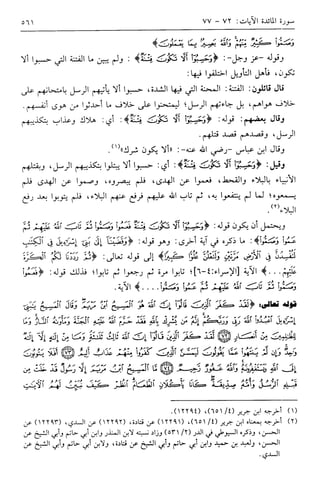 سورة المائدة الآيات: ٧٢ - ٧٧ ٥٦١
وَصَمُّوا كَثِيرٌ مِّنْهُمْ وَاللَّهُ بَصِيرٌ بِمَا يَعْمَلُونَ﴾
وقوله -عز وجل-: ﴿وَحَسِبُوٓا أَلَّا تَكُونَ فِتْنَةٌ﴾: ولم يبين ما الفتنة التي حسبوا ألا
تكون، فأهل التأويل اختلفوا فيها:
قال قائلون: الفتنة: المحنة التي فيها الشدة، حسبوا ألا يأتيهم الرسل بامتحانهم على
خلاف هواهم، بل جاءتهم الرسل؛ ليمتحنوا على خلاف ما أحدثوا من هوى أنفسهم.
وقال بعضهم: قوله: ﴿وَحَسِبُوٓا أَلَّا تَكُونَ فِتْنَةٌ﴾: أي: هلاك وعذاب بتكذيبهم
الرسل، وقصدهم قصد قتلهم.
وقال ابن عباس -رضي الله عنه-: «ألا يكون شرك»(١).
وقيل: ﴿وَحَسِبُوٓا أَلَّا تَكُونَ فِتْنَةٌ﴾: أي: حسبوا ألا يبتلوا بتكذيبهم الرسل، وبقتلهم
الأنبياء بالبلاء والقحط، فعموا عن الهدى، فلم يبصروه، وصموا عن الهدى فلم
يسمعوه؛ لما لم ينتفعوا به، ثم تاب الله عليهم فرفع عنهم البلاء، فلم يتوبوا بعد رفع
البلاء(٢).
ويحتمل أن يكون قوله: ﴿وَحَسِبُوٓا أَلَّا تَكُونَ فِتْنَةٌ فَعَمُوا وَصَمُّوا ثُمَّ تَابَ اللَّهُ عَلَيْهِمْ ثُمَّ
عَمُوا وَصَمُّوا﴾: ما ذكره في آية أخرى: وهو قوله: ﴿وَقَضَيْنَآ إِلَىٰ بَنِيٓ إِسْرَٰٓءِيلَ فِي الْكِتَٰبِ
لَتُفْسِدُنَّ فِي الْأَرْضِ مَرَّتَيْنِ وَلَتَعْلُنَّ عُلُوًّا كَبِيرًا﴾ إلى قوله تعالى: ﴿ثُمَّ رَدَدْنَا لَكُمُ الْكَرَّةَ
عَلَيْهِمْ...﴾ الآية [الإسراء: ٤-٦]؛ تابوا مرة ثم رجعوا ثم تابوا؛ فذلك قوله: ﴿فَعَمُوا
وَصَمُّوا ثُمَّ تَابَ اللَّهُ عَلَيْهِمْ ثُمَّ عَمُوا وَصَمُّوا....﴾ الآية.
قوله تعالى: ﴿لَقَدْ كَفَرَ الَّذِينَ قَالُوٓا إِنَّ اللَّهَ هُوَ الْمَسِيحُ ابْنُ مَرْيَمَ وَقَالَ الْمَسِيحُ يَٰبَنِيٓ
إِسْرَٰٓءِيلَ اعْبُدُوا اللَّهَ رَبِّي وَرَبَّكُمْ إِنَّهُ مَن يُشْرِكْ بِاللَّهِ فَقَدْ حَرَّمَ اللَّهُ عَلَيْهِ الْجَنَّةَ وَمَأْوَىٰهُ النَّارُ وَمَا
لِلظَّٰلِمِينَ مِنْ أَنصَارٍ ﴿٧٢﴾ لَّقَدْ كَفَرَ الَّذِينَ قَالُوٓا إِنَّ اللَّهَ ثَالِثُ ثَلَٰثَةٍ وَمَا مِنْ إِلَٰهٍ إِلَّآ إِلَٰهٌ
وَٰحِدٌ وَإِن لَّمْ يَنتَهُوا عَمَّا يَقُولُونَ لَيَمَسَّنَّ الَّذِينَ كَفَرُوا مِنْهُمْ عَذَابٌ أَلِيمٌ ﴿٧٣﴾ أَفَلَا يَتُوبُونَ
إِلَى اللَّهِ وَيَسْتَغْفِرُونَهُ وَاللَّهُ غَفُورٌ رَّحِيمٌ ﴿٧٤﴾ مَّا الْمَسِيحُ ابْنُ مَرْيَمَ إِلَّا رَسُولٌ قَدْ خَلَتْ مِن
قَبْلِهِ الرُّسُلُ وَأُمُّهُ صِدِّيقَةٌ كَانَا يَأْكُلَانِ الطَّعَامَ انظُرْ كَيْفَ نُبَيِّنُ لَهُمُ الْآيَٰتِ
(١) أخرجه ابن جرير (٤/ ٦٥١)، (١٢٢٩٤).
(٢) أخرجه بمعناه ابن جرير (٤/ ٦٥١) (١٢٢٩١) عن قتادة، (١٢٢٩٢) عن السدي، (١٢٢٩٣) عن
الحسن، وذكره السيوطي في الدر (٢/ ٥٣١) وزاد نسبته لابن المنذر وابن أبي حاتم وأبي الشيخ عن
الحسن، ولعبد بن حميد وابن أبي حاتم وأبي الشيخ عن قتادة، ولابن أبي حاتم وأبي الشيخ عن
السدي.